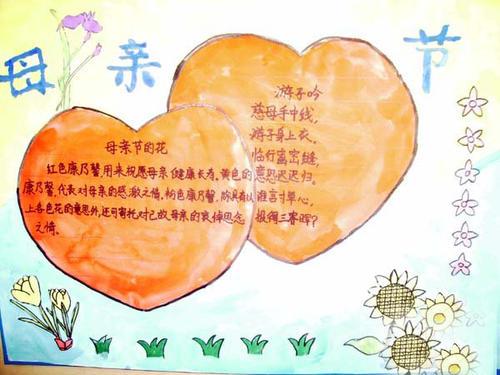 母亲节
母亲节的花
红色康乃馨用来祝愿母亲健康长寿,黄色的
康乃馨,代表对母亲的感激之情,粉色康乃馨,除具有以
上各色花的意思外,还可寄托对已故母亲的哀悼思念
之情。
游子吟
慈母手中线,
游子身上衣。
临行密密缝,
意恐迟迟归。
谁言寸草心,
报得三春晖?